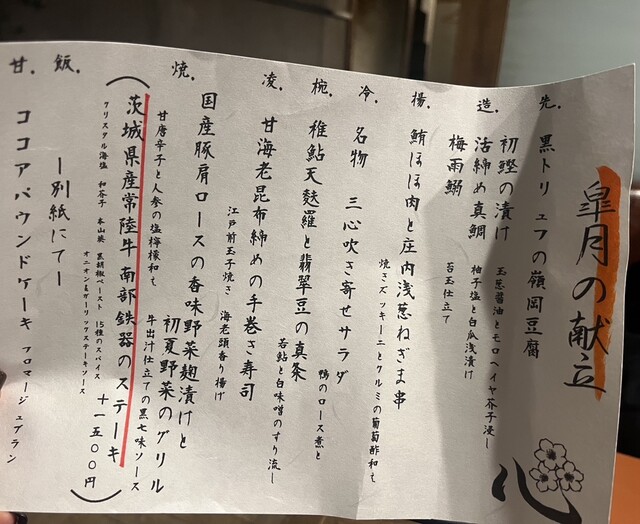 皐月の献立
先. 黒トリュフの嶺岡豆腐
造. 初鰹の漬け 玉葱醤油とモロヘイヤ芥子浸し
活締め真鯛 柚子塩と白瓜浅漬け
梅雨鰯 苔玉仕立て
揚. 鮪ほほ肉と庄内浅葱ねぎま串
焼きズッキーニとクルミの葡萄酢和え
冷. 名物 三心吹き寄せサラダ
鴨のロース煮と
椀. 稚鮎天麩羅と翡翠豆の真条
若鮎と白味噌のすり流し
凌. 甘海老昆布締めの手巻き寿司
江戸前玉子焼き 海老頭香り揚げ
焼. 国産豚肩ロースの香味野菜麹漬けと
初夏野菜のグリル
甘唐辛子と人参の塩檸檬和え 牛出汁仕立ての黒七味ソース
(茨城県産常陸牛 南部鉄器のステーキ 十一五〇〇円)
クリスタル海塩 和芥子 本山葵 黒胡椒ペースト 15種のスパイス
オニオン&ガーリックステーキソース
飯. ー別紙にてー
甘. ココアパウンドケーキ フロマージュブラン
心